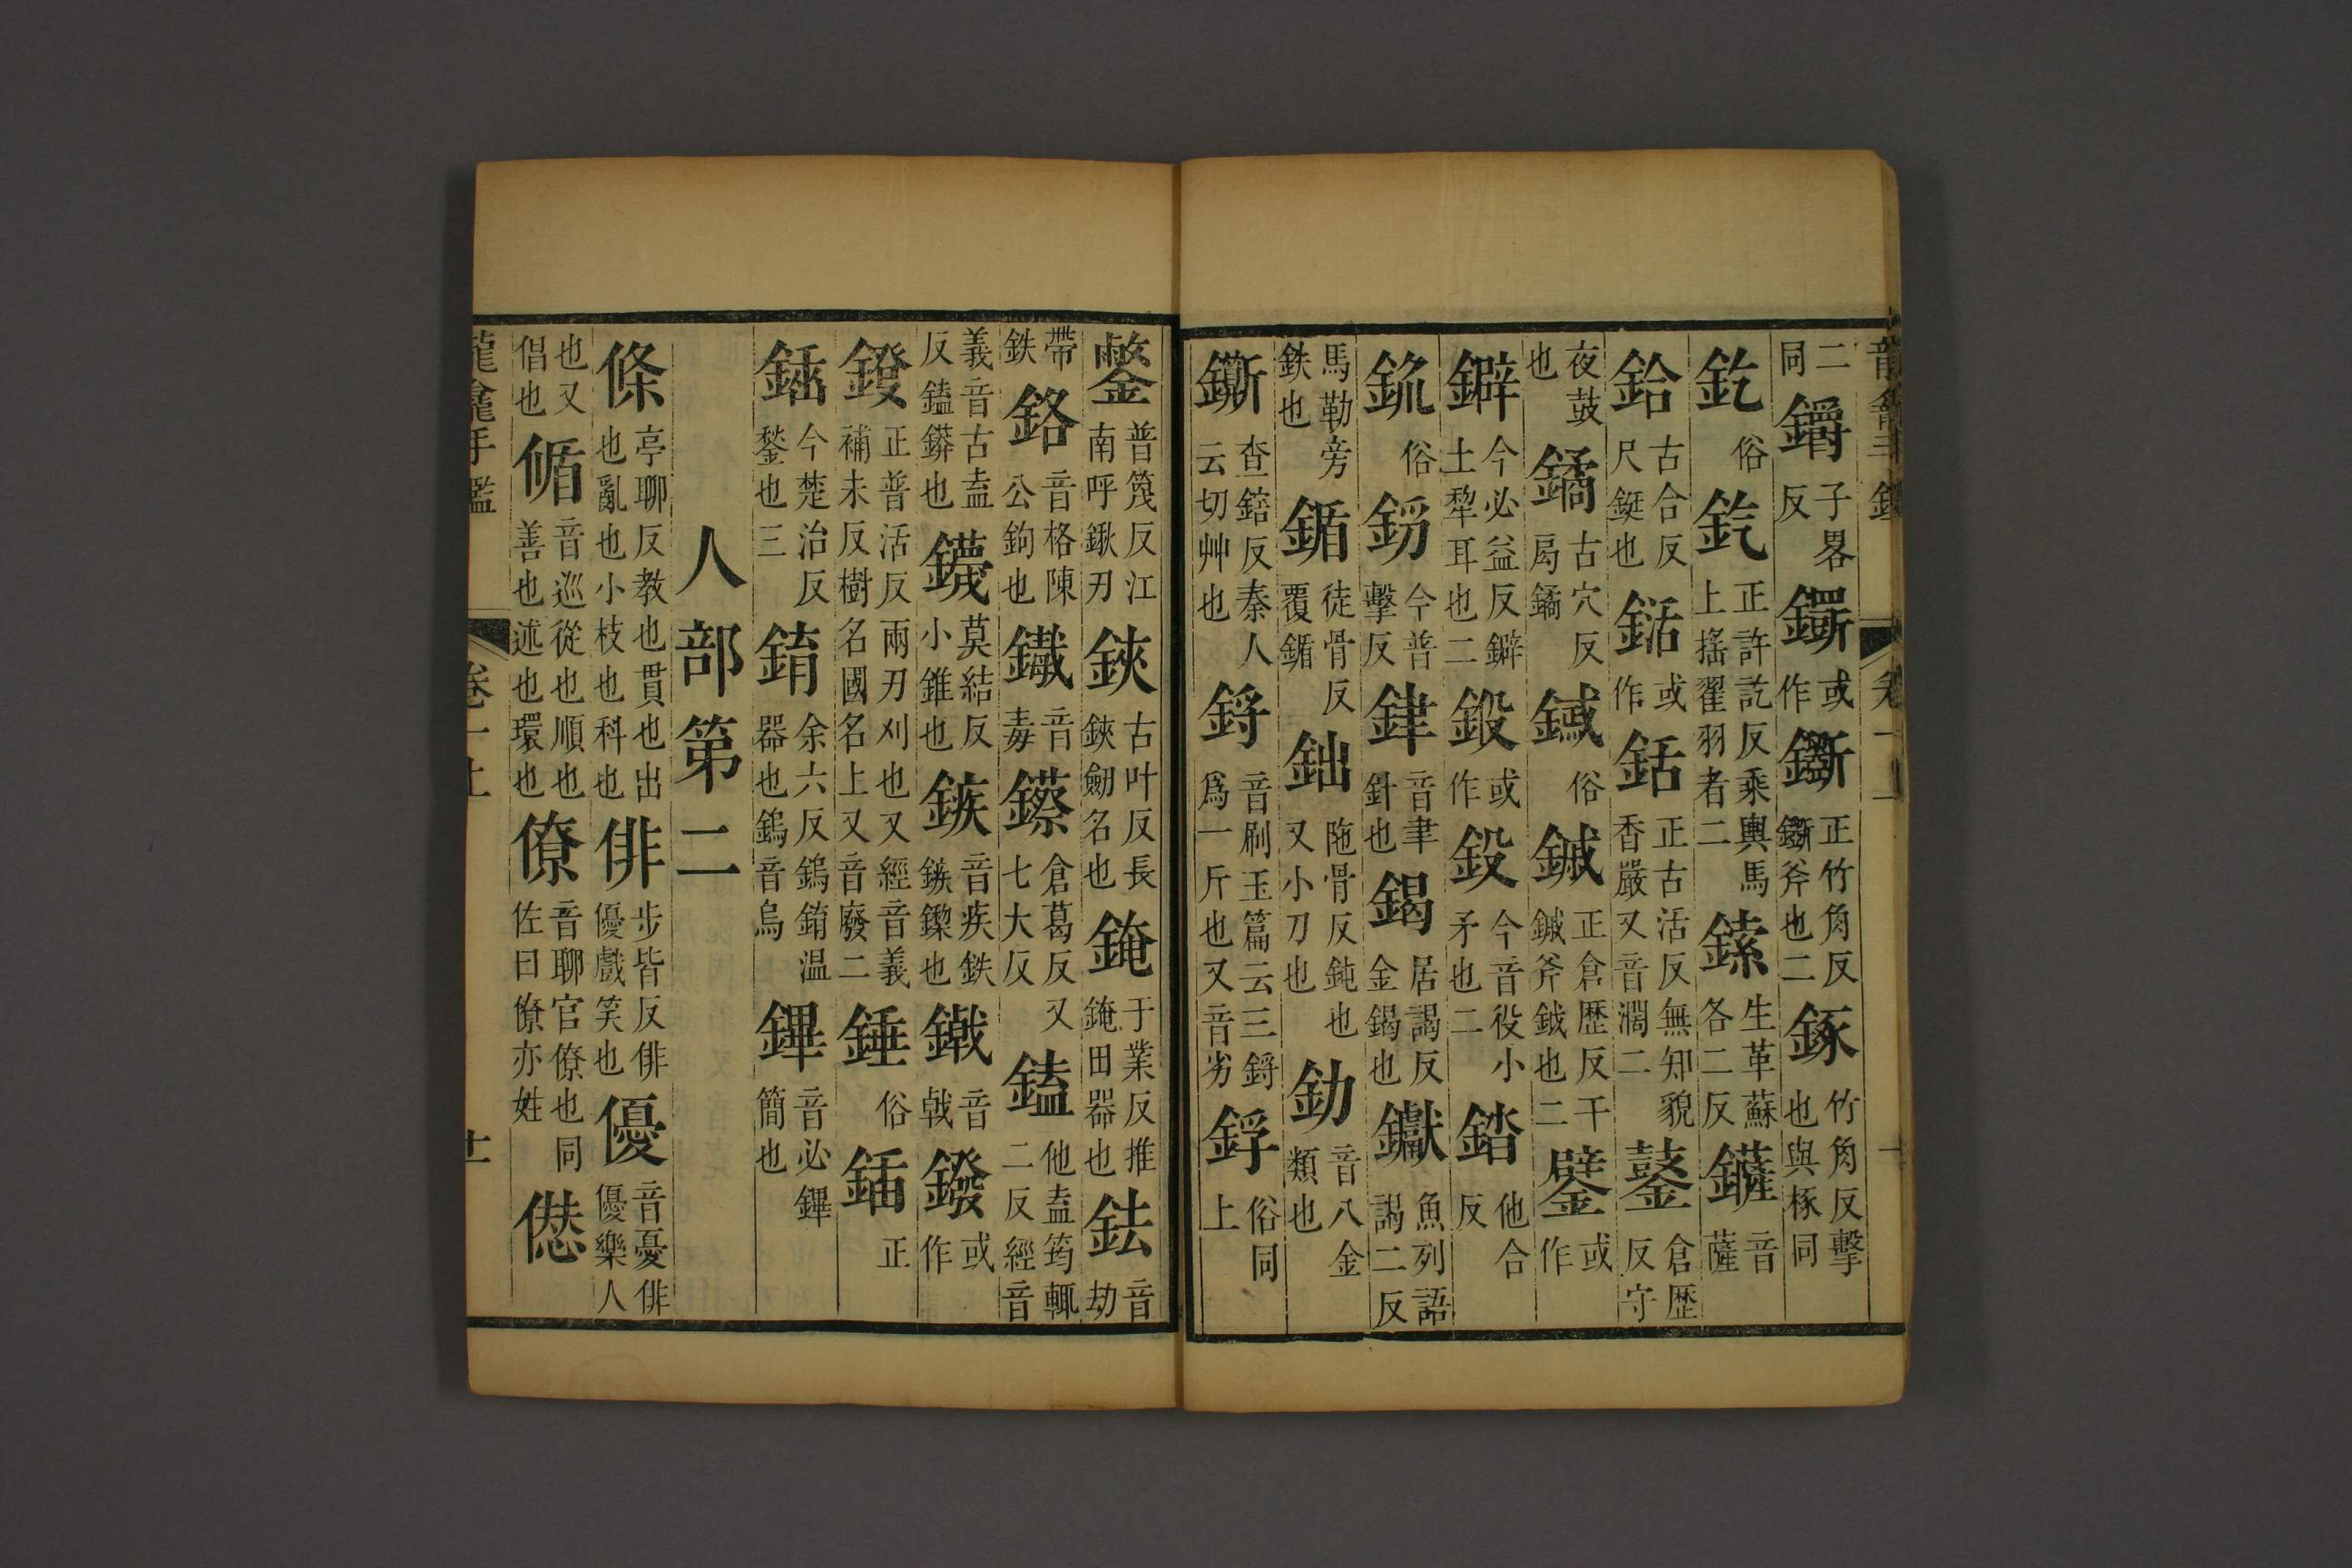 二同鐲子畧反鐁或作斵正竹角反斵斧也二鋜竹角反擊也與椓同
釳俗釳正許訖反乘輿馬上揺翟羽者二鎍生革蘇各二反䥇音薩
鉿古合反尺鋌也銽或作銛正古活反無知貌香嚴又音濶二鼜倉歴反守
夜鼓也鐍古穴反扄鐍鏚俗鏚正倉歴反干鏚斧鉞也二鐾或作
鐴今必益反鐴土犂耳也二鍛或作鈠今音役小矛也二錔他合反
鈲俗釽今普擊反銉音聿針也鍻居謁反金鍻也钀魚列語謁二反
馬勒旁鉄也鍎徒骨反覆鍎鈯陁骨反鈍也又小刀也釛音八金類也
鐁查鎋反秦人云切艸也鋝音刷玉篇云三鋝爲一斤也又音劣鋝俗同上
鐅普篾反江南呼鍬刃鋏古叶反長鋏劒名也䤶于業反推䤶田器也鉣音劫
帶鉄鉻音格陳公鉤也鐵音毒鑔倉葛反又七大反鎑他盍筠輒二反經音
義音古盍反鎑鐴也鑖莫結反小錐也鏃音疾鉄鏃鏫也鐵音戟鏺或作
鏺正普活反兩刃刈也又經音義補未反樹名國名上又音廢二錘俗鍤正
鍤今楚治反鍫也三錥余六反鎢錥温器也鎢音烏鏎音必鏎簡也
人部第二
條亭聊反教也貫也出也亂也小枝也科也俳步皆反俳優戲笑也優音憂俳優樂人
也又倡也循音巡從也順也善也述也環也僚音聊官僚也同佐曰僚亦姓僁
龍龕手鑑 卷一上 十一